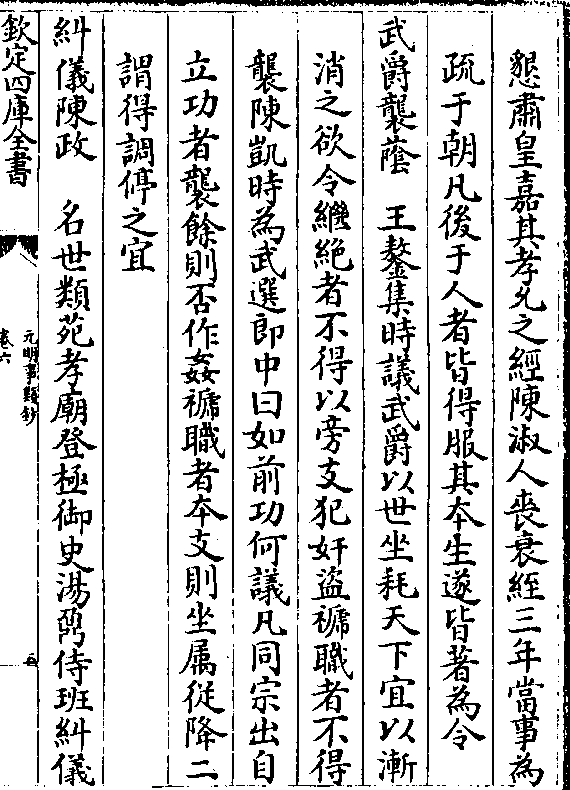 懇肅皇嘉其孝允之經陳淑人喪衰絰三年當事為
疏于朝凡後于人者皆得服其本生遂皆著為令
武爵襲蔭　王鏊集時議武爵以世坐耗天下宜以漸
消之欲令繼絶者不得以旁支犯奸盜褫職者不得
襲陳凱時為武選郎中曰如前功何議凡同宗出自
立功者襲餘則否作姦褫職者本支則坐属從降二
謂得調停之宜
糾儀陳政　名世類苑孝廟登極御史湯鼐侍班糾儀
欽定四庫全書
元明事類鈔
卷六